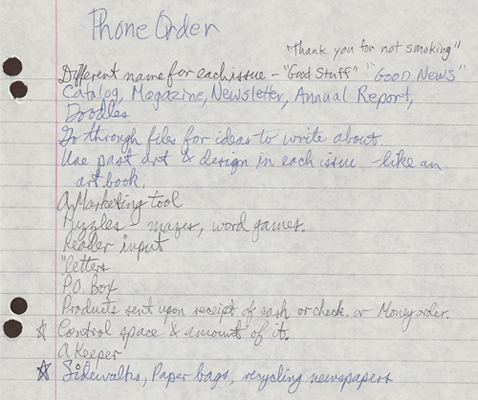 Phone Order
"thank you for not smoking"
Different name for each issue - "Good Stuff" "Good News"
Catalog, Magazine, Newsletter, Annual Report,
Doodles
Go through files for ideas to write about
Use past art & design in each issue - like an
art book.
A Marketing tool
Puzzles - mazes, word games.
Reader input
"letters
P.O. Box
Products sent upon receipt of cash or check. or Money order.
☆ Control space & amount of it.
A Keeper
☆ Sidewalks, Paper bags, recycling newspapers